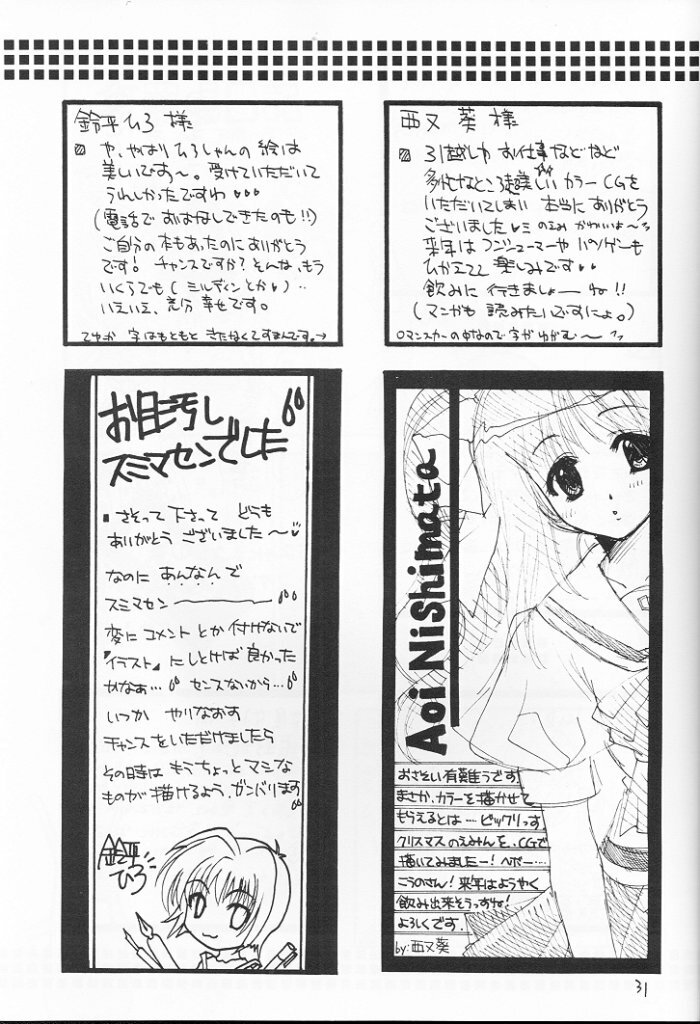 鈴平ひろ 様
や、やはり ひろしゃんの 絵は
美しいです〜。受けていただいて
うれしかったですわ
(電話で おはなしできたのも!!)
ご自分の本もあったのに ありがとう
です! チャンスですか? そんな、もう
いくらでも( ミルディンとか )‥
いえいえ、充分 幸せです。
てゆか 字はもともと きたなくてすまんです。→
西又 葵 様
引越しや お仕事などなど
多忙なところ 美しい カラー CGを
いただいてしまい 本当に ありがとう
ございました
来年は コンシューマーや パソゲーも
ひかえてて 楽しみです
飲みに 行きましょー ね!!
(マンガも 読みたいですにょ。)
お目汚し
スミマセンでした
さそって下さって どうも
ありがとう ございました〜
なのに あんなんで
スミマセン
変に コメント とか 付けないで
『イラスト』にしとけば 良かった
かなぁ… センスないから…
いつか やりなおす
チャンスをいただけましたら
その時は もうちょっと マシな
ものが 描けるよう、ガンバります
鈴平
ひろ
Aoi Nishimata
おさそい有難うです
まさか、カラーを描かせて
もらえるとは… ビックリっす
クリスマスのえみんを、CGで
描いてみましたー! へボー…
こうのさん! 来年はようやく
飲み出来そうっすね!
よろしくです。
by:西又葵
31